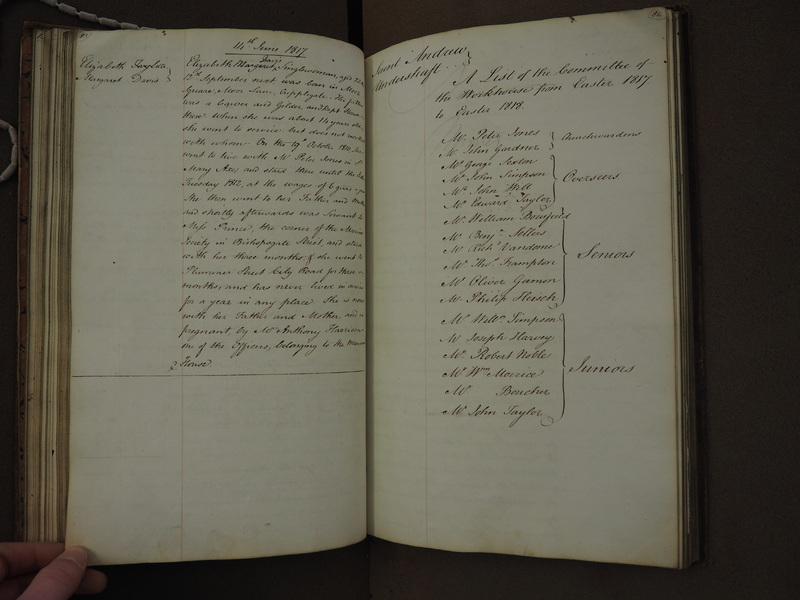 14th June 1817
Elizabeth Taylor
Margaret Davis
Elizabeth Margaret Davis Singlewoman, aged 22 on
13th September next was born in Moor
Square, Moor Lane, Cripplegate. Her father
was a Carver and Gilder, and kept House
there. When she was about 14 years old
she went to service but does not
with whom. On the 19th October 1811 she
went to live with Mr Peter Jones in St
Mary Axe, and staid there until the
Tuesday 1812, at the wages of 6 gns
She then went to her Father and
and shortly afterwards was Servant to
Miss Prince, the corner of the
Society in Bishopsgate Street and staid
with her three months; & she went to
Plummer Street City Road for three
months, and has never lived in
for a year in any place. She is now
with her Father and Mother and is
pregnant by Mr Anthony Harrison
one of the Officers, belonging to the Mansion
House
Saint Andrew
Undershaft
A List of the Committee of
the Workhouse from Easter 1817
to Easter 1818.
Mr Peter Jones
Mr John Gardner
Churchwardens
Mr George Sexton
Mr John Simpson
Mr John Will
Mr Edward Taylor
Overseers
Mr William
Mr Benjn Sellers
Mr Richd Vandome
Mr Thos Frampton
Mr Oliver Gamon
Mr Philip Hensch
Seniors
Mr Willm Timpson
Mr Joseph Harvey
Mr Robert Nobles
Mr Wm Morrice
Mr Boucher
Mr John Taylor
Juniors